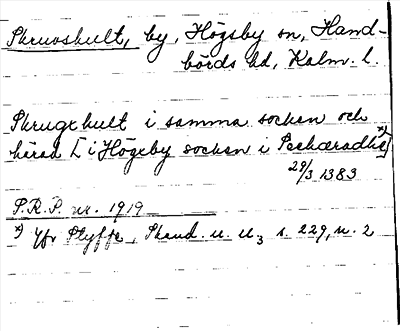 Skruvshult, by, Högsby sn, Hand-
börds hd, Kalm. l.
Skrugxhult i samma socken och
härad [i Högxby socken i Pækæradhe]
29/3 1383
S.R.P. nr. 1919
x) Jfr Styffe, Skand. u. U3 s. 229, n. 2